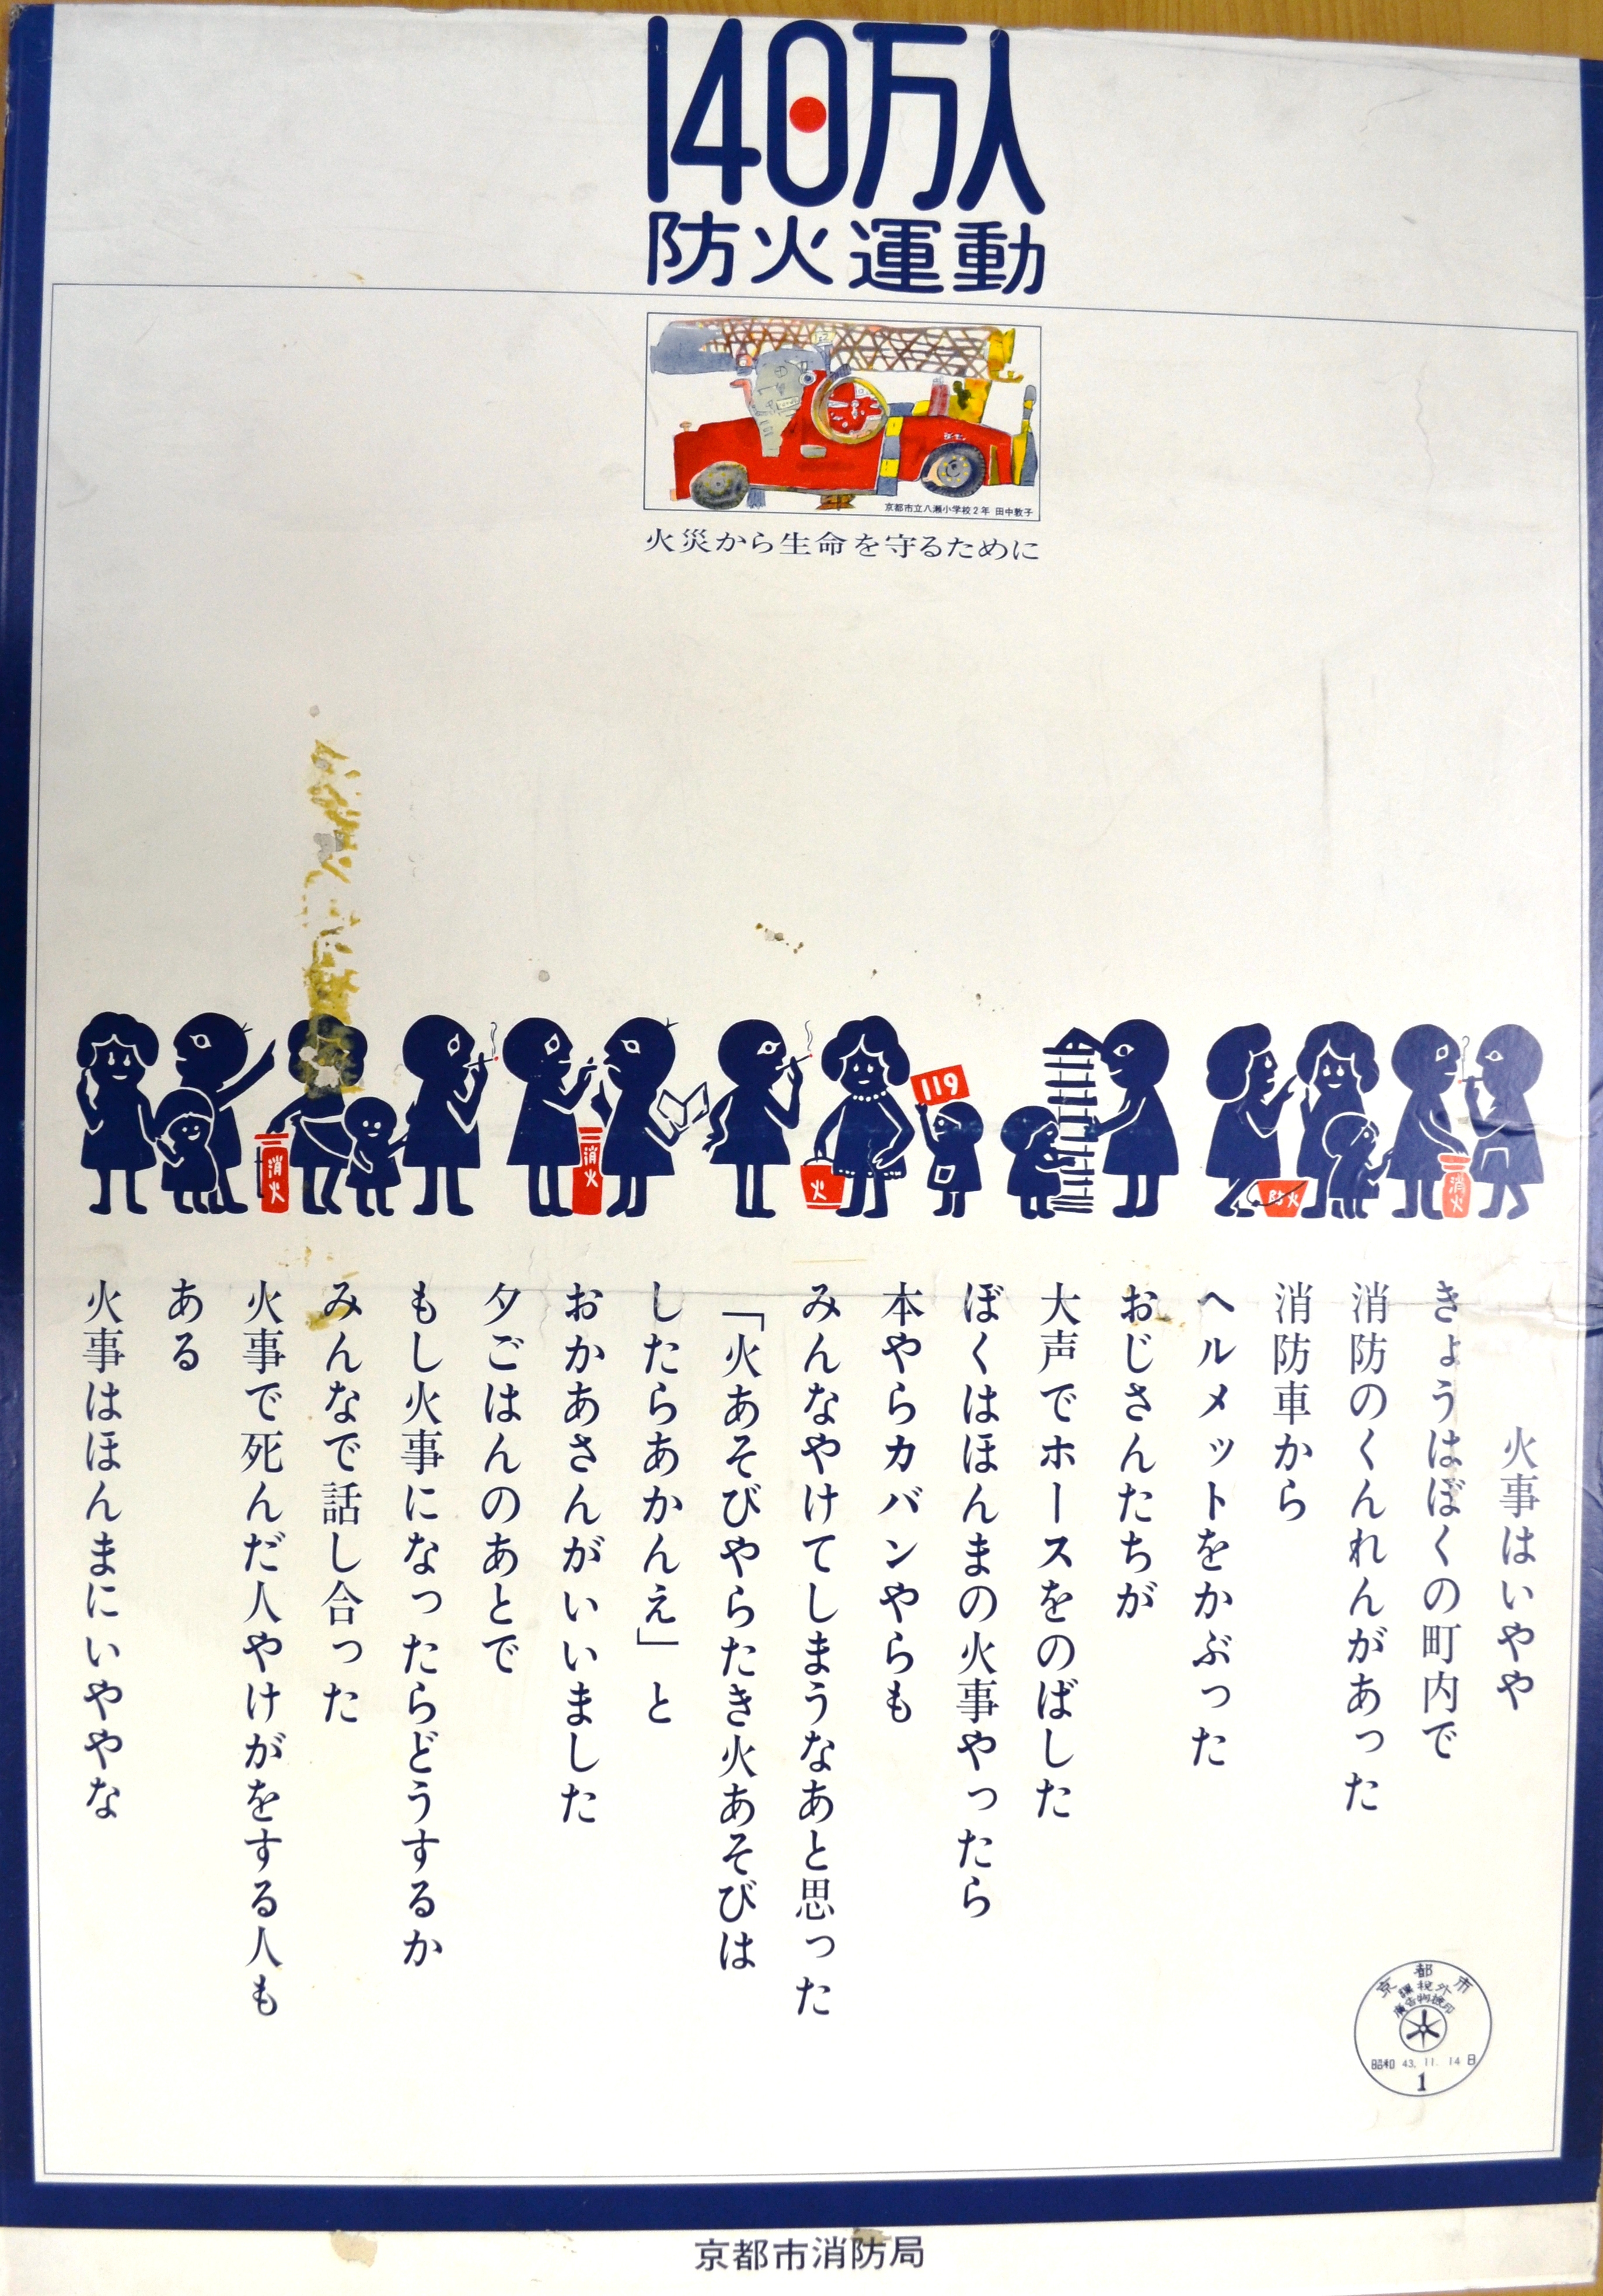 140万人
防火運動
京都市立八瀬小学校2年 田中敦子
火災から生命を守るために
119
消火
消火
火
防火
消火
火事はいやや
きょうはぼくの町内で
消防のくんれんがあった
消防車から
ヘルメットをかぶった
おじさんたちが
大声でホースをのばした
ぼくはほんまの火事やったら
本やらカバンやらも
みんなやけてしまうなあと思った
「火あそびやらたき火あそびは
したらあかんえ」と
おかあさんがいいました
夕ごはんのあとで
もし火事になったらどうするか
みんなで話し合った
火事で死んだ人ややけがをする人も
ある
火事はほんまにいややな
京都市
課税外
廣告物検印
昭和 43. 11. 14 日
1
京都市消防局